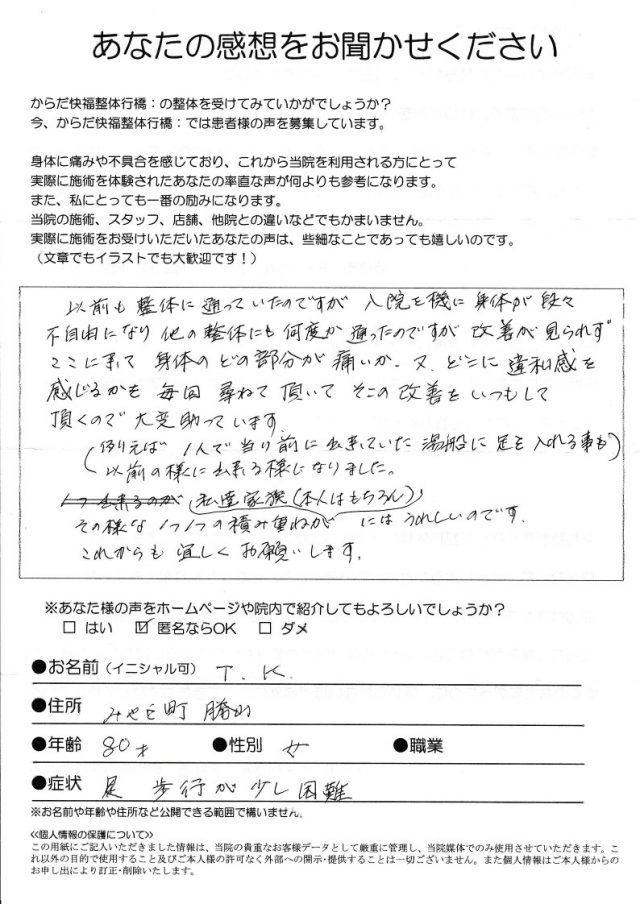 あなたの感想をお聞かせください
からだ快福整体行橋：の整体を受けてみていかがでしょうか？
今、からだ快福整体行橋：では患者様の声を募集しています。
身体に痛みや不具合を感じており、これから当院を利用される方にとって
実際に施術を体験されたあなたの率直な声が何よりも参考になります。
また、私にとっても一番の励みになります。
当院の施術、スタッフ、店舗、他院との違いなどでもかまいません。
実際に施術をお受けいただいたあなたの声は、些細なことであっても嬉しいのです。
（文章でもイラストでも大歓迎です！）
以前も整体に通っていたのですが 入院を機に身体が段々
不自由になり他の整体にも何度か通ったのですが改善が見られず
ここに来て 身体のどの部分が痛いか、又、どこに違和感を
感じるかを毎回尋ねて頂いて そこの改善をいつもして
頂くので大変助っています。
（例りえば 1人で当り前に出来ていた湯船に足を入れる事も）
以前の様に出来る様になりました。
1つ出来るのが 私達家族（本人はもちろん）
その様な1つ1つの積み重ねが にはうれしいのです。
これからも宜しくお願いします。
※あなた様の声をホームページや院内で紹介してもよろしいでしょうか？
□ はい ☑ 匿名ならOK □ ダメ
●お名前（イニシャル可） T. K.
●住所 みやこ町 勝山
●年齢 80才 ●性別 女 ●職業
●症状 足 歩行が少し困難
※お名前や年齢や住所など公開できる範囲で構いません。
≪個人情報の保護について≫
この用紙にご記入いただきました情報は、当院の貴重なお客様データとして厳重に管理し、当院媒体でのみ使用させていただきます。こ
れ以外の目的で使用すること及びご本人様の許可なく外部への開示・提供することは一切ございません。また個人情報はご本人様からの
お申し出により訂正・削除いたします。